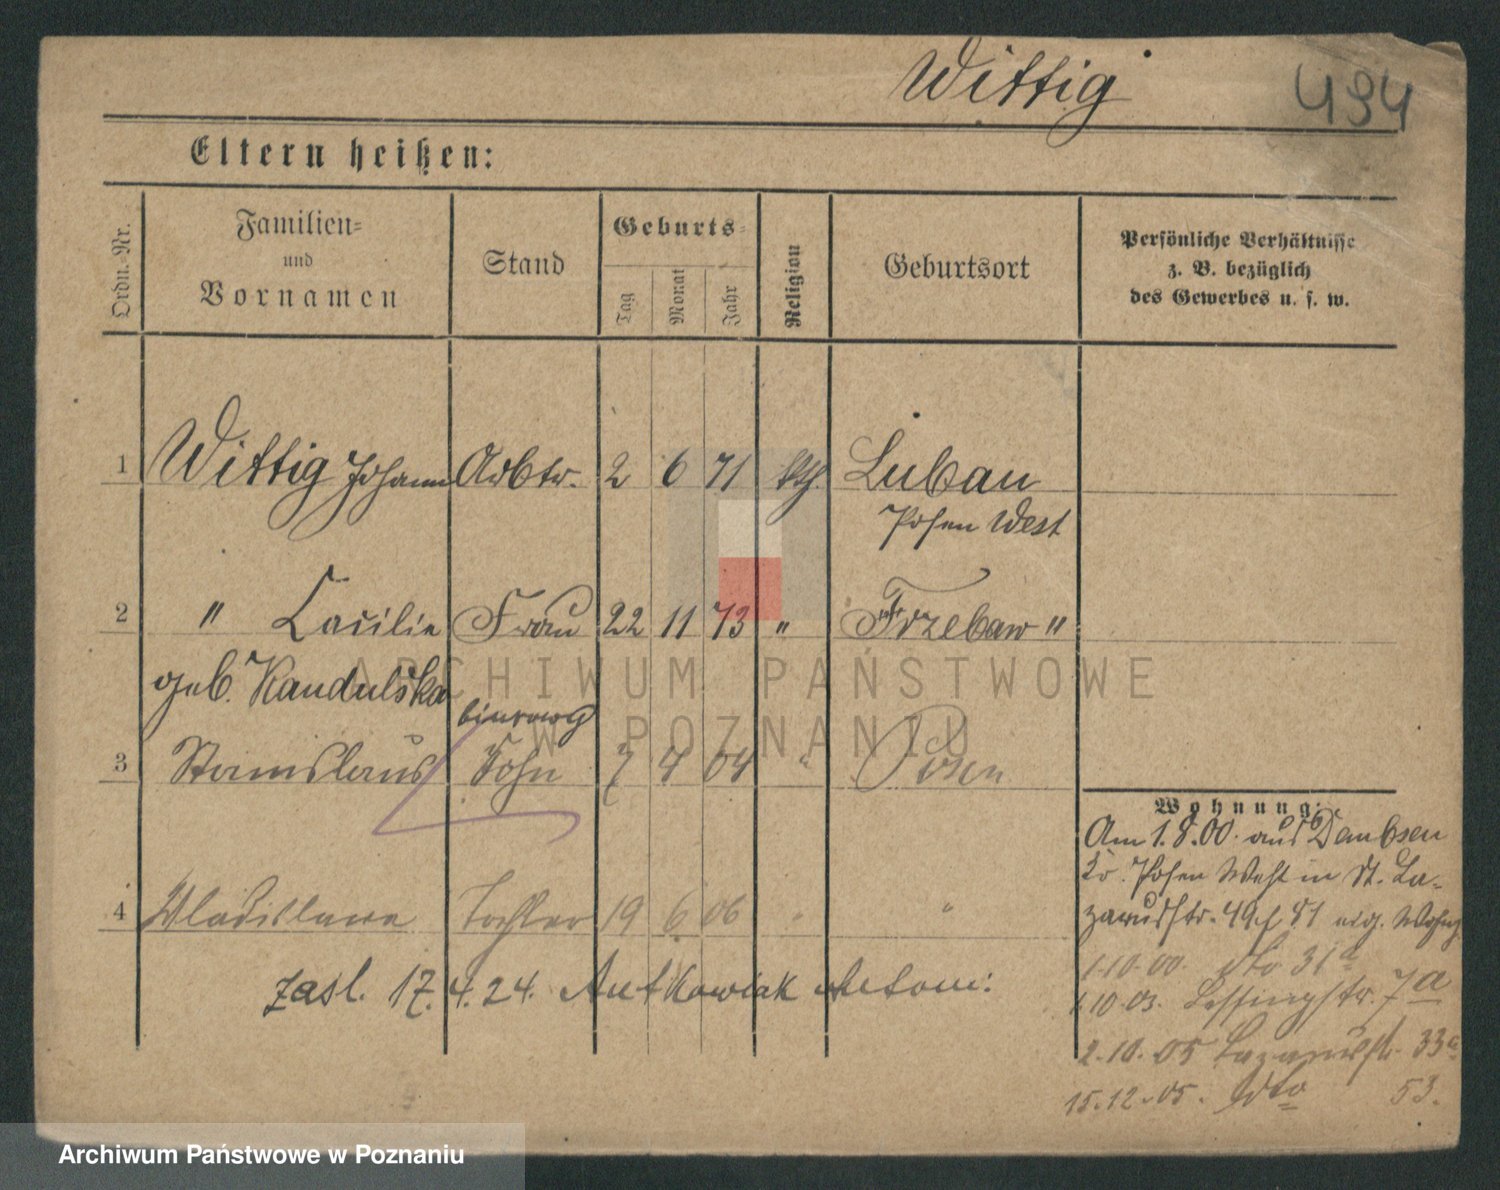 Wittig
494
Eltern heißen:
Ordn. Nr.
Familien-
und
Vornamen
Stand
Geburts-
Tag
Monat
Jahr
Religion
Geburtsort
Persönliche Verhältnisse
z. B. bezüglich
des Gewerbes u. s. w.
1 Wittig Johann Arbtr. 2 6 71 kth. Luban
Posen West
2 " Cäcilie Frau 22 11 73 " Trzebaw "
geb. Kandulska
3 Stanislaus Sohn 7 4 04 " Posen
4 Wladislawa Tochter 19 6 06 " "
zasl. 17.4.24. Antkowiak Antoni
Wohnung:
Am 1.8.00. aus Dembsen
Kr. Posen West in St. La-
zarusstr. 49 eig. Wohng
1.10.00. dto 31a
1.10.03. Lessingstr. 7a
2.10.05 Lazarusstr. 33a
15.12.05. dto 53.
ARCHIWUM PAŃSTWOWE
W POZNANIU
Archiwum Państwowe w Poznaniu